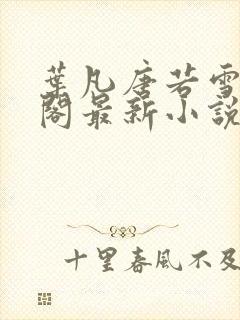 葉凡唐若雪
閣最新小說
十里春風不及